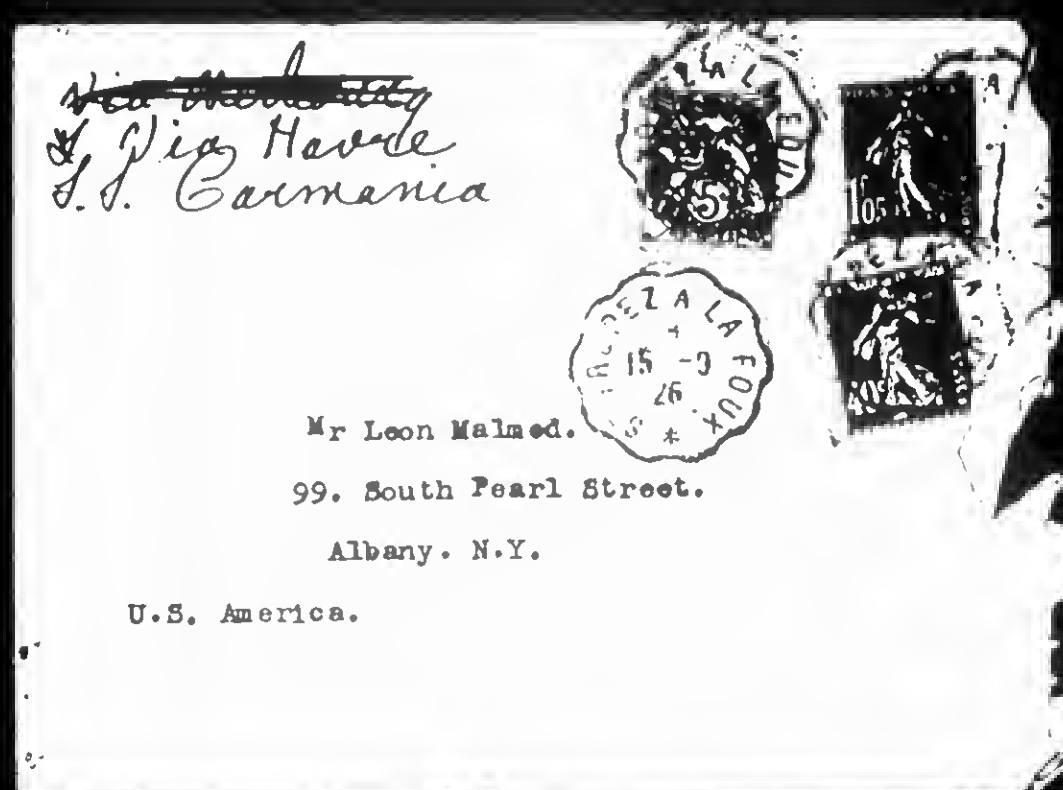 Via
Via Havre
S.S. Carmania
5
105
40c
ST TROPEZ A LA FOUX
15 -9
26
Mr Leon Malmed.
99. South Pearl Street.
Albany. N.Y.
U.S. America.